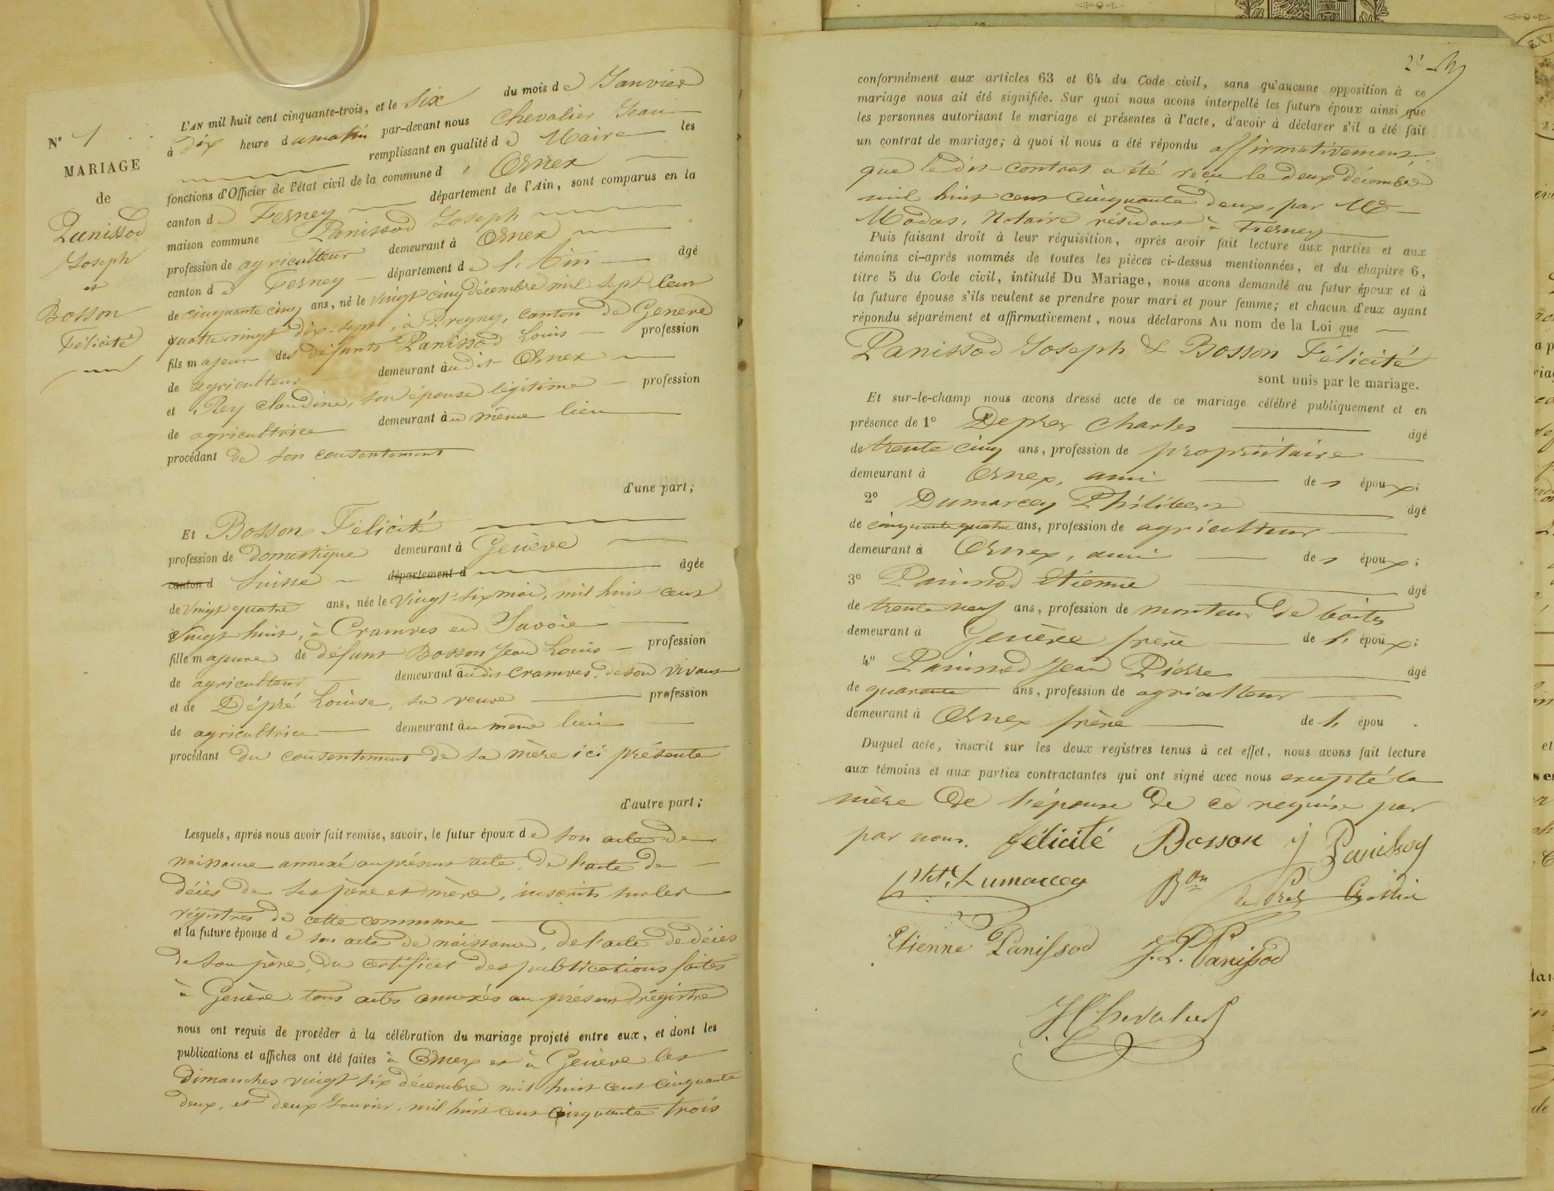 N° 1
MARIAGE
de
Panissod
Joseph
et
Bosson
Félicité
L'AN mil huit cent cinquante-trois, et le six du mois de Janvier
à dix heure du matin par-devant nous Chevalier Jean
remplissant en qualité de Maire les
fonctions d'Officier de l'état civil de la commune d'Ornex
canton de Ferney département de l'Ain, sont comparus en la
maison commune Panissod Joseph
profession de agriculteur demeurant à Ornex
canton de Ferney département de l'Ain âgé
de cinquante cinq ans, né le vingt cinq décembre mil sept cent
quatre vingt dix-sept, à Pregny, canton de Genève
fils majeur des défunts Panissod Louis profession
de agriculteur demeurant au dit Ornex
et Rey Claudine, son épouse légitime profession
de agricultrice demeurant au même lieu
procédant de son consentement
d'une part;
Et Bosson Félicité
profession de domestique demeurant à Genève
canton d Suisse département d âgée
de vingt quatre ans, née le vingt-six mai, mil huit cent
vingt huit, à Cranves en Savoie
fille majeure de défunt Bosson Jean Louis profession
de agriculteur demeurant au dit Cranves, de son vivant
et de Dépré Louise, sa veuve profession
de agricultrice demeurant au même lieu
procédant du consentement de sa mère ici présente
d'autre part;
Lesquels, après nous avoir fait remise, savoir, le futur époux de son acte de
naissance annexé au présent acte, de l'acte de
décès de ses père et mère, inscrits sur les
régistres de cette commune
et la future épouse de son acte de naissance, de l'acte de décès
de son père, du certificat des publications faites
à Genève, tous actes annexés au présent régistre
nous ont requis de procéder à la célébration du mariage projeté entre eux, et dont les
publications et affiches ont été faites à Ornex et à Genève les
Dimanches vingt six décembre mil huit cent cinquante
deux, et deux Janvier, mil huit cent cinquante trois
conformément aux articles 63 et 64 du Code civil, sans qu'aucune opposition à ce
mariage nous ait été signifiée. Sur quoi nous avons interpellé les futurs époux ainsi que
les personnes autorisant le mariage et présentes à l'acte, d'avoir à déclarer s'il a été fait
un contrat de mariage; à quoi il nous a été répondu affirmativement
que le dit contrat a été reçu le deux décembre
mil huit cent cinquante deux, par Me
Notaire résidant à Ferney
Puis faisant droit à leur réquisition, après avoir fait lecture aux parties et aux
témoins ci-après nommés de toutes les pièces ci-dessus mentionnées, et du chapitre 6,
titre 5 du Code civil, intitulé Du Mariage, nous avons demandé au futur époux et à
la future épouse s'ils veulent se prendre pour mari et pour femme; et chacun d'eux ayant
répondu séparément et affirmativement, nous déclarons Au nom de la Loi que
Panissod Joseph & Bosson Félicité
sont unis par le mariage.
Et sur-le-champ nous avons dressé acte de ce mariage célébré publiquement et en
présence de 1° Deprez Charles âgé
de trente cinq ans, profession de propriétaire
demeurant à Ornex, ami de l'époux;
2° Dumarcey Philibert âgé
de cinquante quatre ans, profession de agriculteur
demeurant à Ornex, ami de l'époux;
3° Panissod Etienne âgé
de trente neuf ans, profession de monteur de boites
demeurant à Genève frère de l'époux;
4° Panissod Jean Pierre âgé
de quarante ans, profession de agriculteur
demeurant à Ornex frère de l'épou .
Duquel acte, inscrit sur les deux registres tenus à cet effet, nous avons fait lecture
aux témoins et aux parties contractantes qui ont signé avec nous excepté la
mère de l'épouse de ce requise par
par nous. félicité Bosson j Panissod
Phte Dumarcey Bon
Etienne Panissod J. P. Panissod
J Chevalier